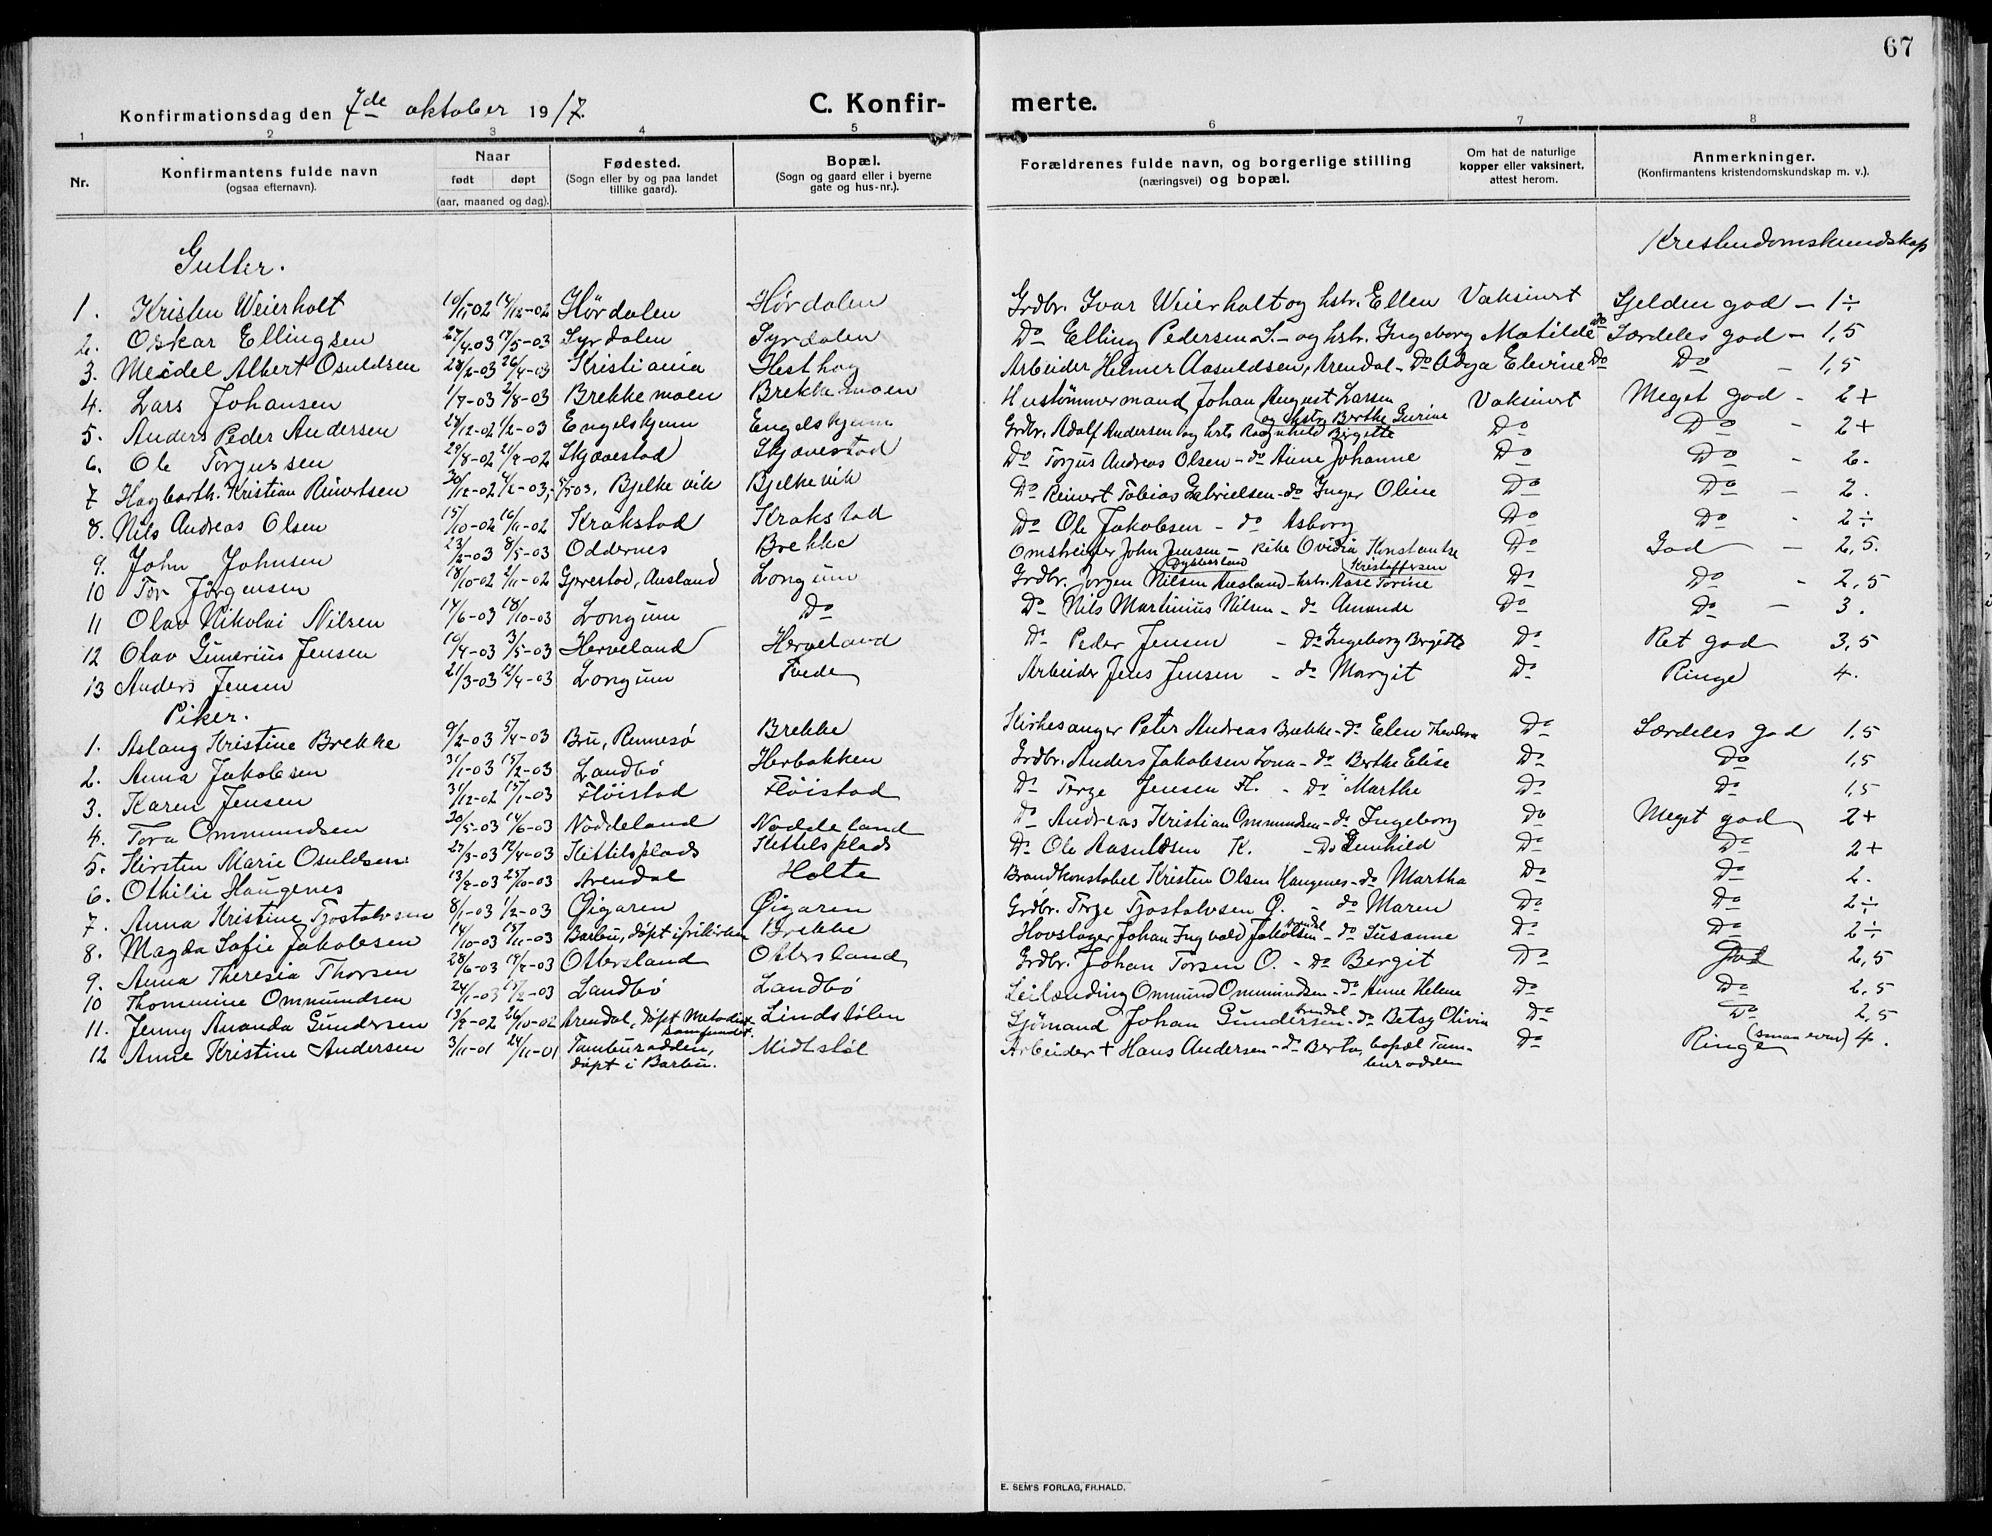 67
Konfirmationsdag den 7de oktober 1917.
C. Konfirmerte.
1 2 3 4 5 6 7 8
Nr. Konfirmantens fulde navn (ogsaa efternavn). Naar født døpt (aar, maaned og dag). Fødested. (Sogn eller by og paa landet tillike gaard). Bopæl. (Sogn og gaard eller i byerne gate og hus-nr.). Forældrenes fulde navn, og borgerlige stilling (næringsvei) og bopæl. Om hat de naturlige kopper eller vaksinert, attest herom. Anmerkninger. (Konfirmantens kristendomskundskap m. v.).
Gutter. Kristendomskundskap
1. Kristen Weierholt 10/11-02 14/12-02 Hördalen Hördalen Grdbr. Ivar Weierholt og hstr. Ellen Vaksinert Sjelden god - 1÷
2. Oskar Ellingsen 27/4-03 17/5-03 Syrdalen Syrdalen Do Elling Pedersen S. - og hstr. Ingeborg Matilde do Særdeles god - 1,5
3. Meidel Albert Osuldsen 28/2-03 26/4-03 Kristiania Hesthag Arbeider Helmer Aasuldsen, Arendal - Do Olga Elevine Do Do - 1,5
4. Lars Johansen 1/7-03 2/8-03 Brekkemoen Brekkemoen Hustømmermand Johan August Larsen og hstr. Berthe Gurine Vaksinert Meget god - 2+
5. Anders Peder Andersen 24/12-02 1/2-03 Engelskjøn Engelskjøn Grdbr. Adolf Andersen og hstr. Ragnhild Birgette Do Do - 2+
6. Ole Torjussen 29/8-02 21/9-02 Skjævestad Skjævestad Do Torjus Andreas Olsen - do Anne Johanne Do Do - 2.
7 Hagbarth Kristian Reinertsen 30/12-02 Bjelkevik Bjelkevik Do Reinert Tobias Gabrielsen - do Inger Oline Do Do - 2.
8. Nils Andreas Olsen 15/10-02 16/11-02 Krakstad Krakstad Do Ole Jakobsen - do Asborg Do Do - 2÷
9. John Johnsen 23/2-03 8/5-03 Oddernes Brekke Omstreifer John Jensen Dybesland - Rike Ovidia Konstanse Kristoffersen Do God - 2,5.
10 Tor Jörgensen 18/10-02 2/11-02 Gjerestad, Ausland Longum Grdbr. Jörgen Nilsen Ausland - hstr. Aase Torine Do Do - 2,5
11 Olav Nikolai Nilsen 14/6-03 18/10-03 Longum Do Do Nils Martinius Nilsen - do Amande Do Do - 3.
12 Olav Gunerius Jensen 10/4-03 3/5-03 Herveland Herveland Do Peder Jensen - Do Ingeborg Bergitte Do Ret god 3,5
13 Anders Jensen 21/3-03 12/4-03 Longum Tvede Arbeider Jens Jensen - do Margit Do Ringe 4.
Piker.
1. Aslaug Kristine Brekke 9/2-03 5/4-03 Bru, Rennesö Brekke Kirkesanger Peter Andreas Brekke - do Elen Theodora Do Særdeles god 1,5
2. Anna Jakobsen 31/1-03 15/2-03 Landbö Herbakken Grdbr. Anders Jakobsen Lona - do Berthe Elise Do Do 1,5
3. Karen Jensen 31/12-02 15/1-03 Flöistad Flöistad Do Terge Jensen Fl. - Do Marthe Do Do 1,5
4. Tora Ommundsen 20/5-03 14/6-03 Noddeland Noddeland Do Andreas Kristian Ommundsen - do Ingeborg Do Meget god 2+
5. Kirsten Marie Osuldsen 23/3-03 12/4-03 Kittilsplads Kittilsplads Do Ole Aasuldsen K. - Do Gunhild Do Do 2+
6. Othilie Haugenes 13/9-03 25/10-03 Arendal Holte Brandkonstabel Kristen Olsen Haugenes - do Martha Do Do 2.
7. Anna Kristine Tjostolvsen 8/1-03 1/2-03 Øigaren Øigaren Grdbr. Terje Tjostolvsen Ø. - do Maren Do Do 2÷
8. Magda Sofie Jakobsen 14/10-03 15/11-03 Barbu, döpt i frikirken Brekke Hovslager Johan Ingvald Jakobsen Arendal - do Susanne Do Do 2÷
9. Anna Theresia Thorsen 28/6-03 19/7-03 Ottersland Ottersland Grdbr. Johan Torsen O. - Do Bergit Do God 2,5
10 Thommine Ommundsen 24/1-03 15/2-03 Landbö Landbö Leilænding Ommund Ommundsen - do Anne Helene Do Do 2,5
11. Jenny Ananda Gundersen 13/9-02 26/10-02 Arendal, döpt Metodistsamfundet. Lindstölen Sjömand Johan Gundersen Arendal - do Betsy Olivia Do Do 2,5
12 Anne Kristine Andersen 3/11-01 24/11-01 Tamburodden, döpt i Barbu. Midtstöl Arbeider + Hans Andersen - do Berta, bopæl Tamburodden Do Ringe (smaa evner) 4.
E. SEM'S FORLAG, FR.HALD.